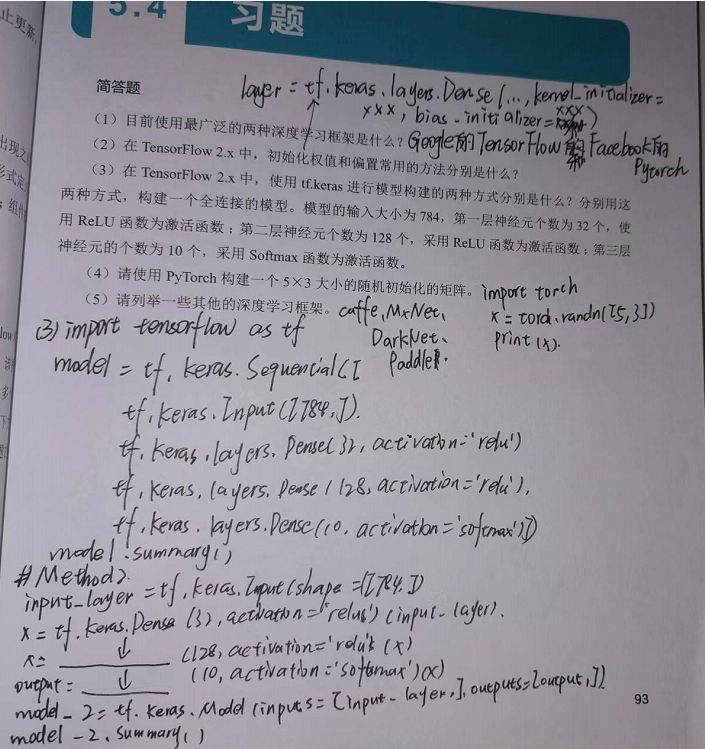 止更新,
5.4 习题
简答题
layer = tf.keras.layers.Dense(..., kernel_initializer=
xxx, bias_initializer=xxx)
(1)目前使用最广泛的两种深度学习框架是什么?
Google的TensorFlow
Facebook的
Pytorch
(2)在 TensorFlow 2.x 中,初始化权值和偏置常用的方法分别是什么?
(3)在 TensorFlow 2.x 中,使用 tf.keras 进行模型构建的两种方式分别是什么?分别用这
两种方式,构建一个全连接的模型。模型的输入大小为 784,第一层神经元个数为 32 个,使
用 ReLU 函数为激活函数;第二层神经元个数为 128 个,采用 ReLU 函数为激活函数;第三层
神经元的个数为 10 个,采用 Softmax 函数为激活函数。
(4)请使用 PyTorch 构建一个 5×3 大小的随机初始化的矩阵。
import torch
x = torch.randn([5,3])
print(x).
(5)请列举一些其他的深度学习框架。
caffe, MxNet、
DarkNet、
(3) import tensorflow as tf
model = tf.keras.Sequencial([
tf.keras.Input([784,]).
tf.keras.layers.Dense(32, activation='relu')
tf.keras.layers.Dense(128, activation='relu'),
tf.keras.layers.Dense(10, activation='softmax')])
model.summary()
#Method2.
input_layer = tf.keras.Input(shape=([784,])
x = tf.keras.Dense(32, activation='relu')(input_layer).
x= ↓ (128, activation='relu')(x)
output = ↓ (10, activation='softmax')(x)
model_2 = tf.keras.Model(inputs=[input_layer,], outputs=[output,]).
model_2.summary()
93